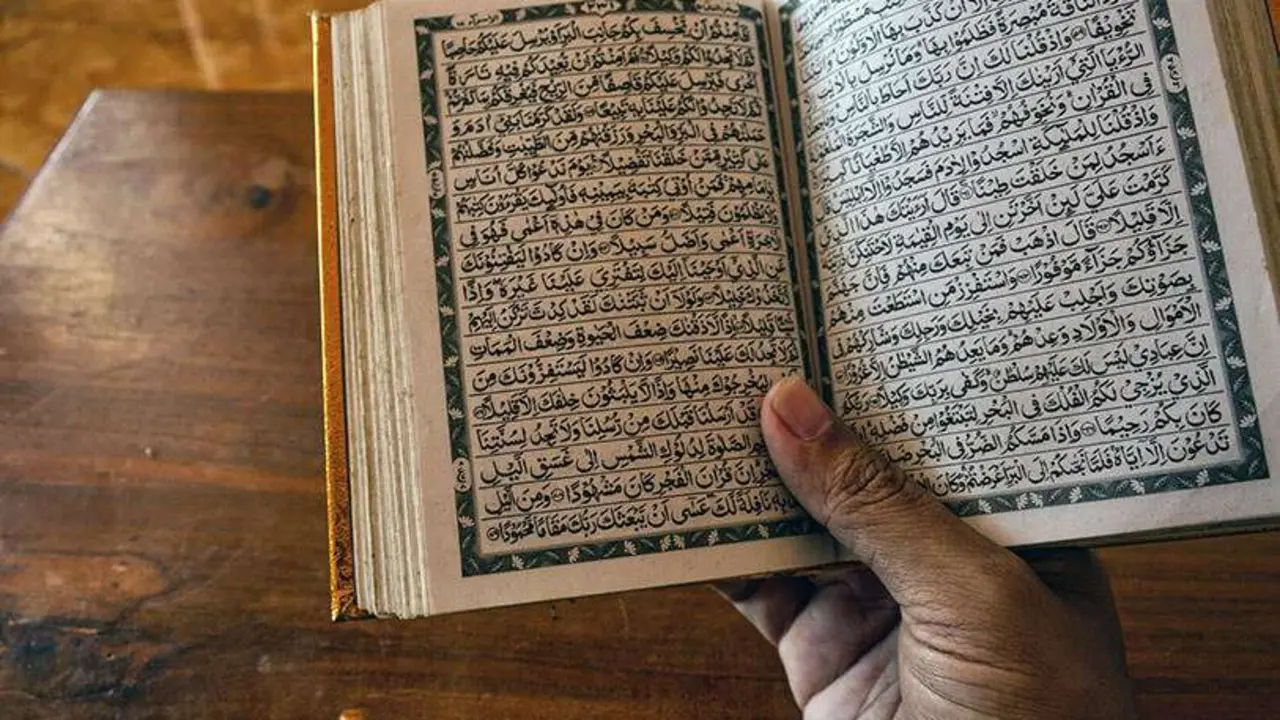 اِلَّآ اَنْ كَذَّبَ بِهَا الْاَوَّلُوْنَ
النَّاقَةَ مُبْصِرَةً فَظَلَمُوْا بِهَا وَمَا نُرْسِلُ بِالْاٰيٰتِ
تَخْوِيْفًا ۝ وَاِذْ قُلْنَا لَكَ اِنَّ رَبَّكَ اَحَاطَ بِالنَّاسِ
الرُّءْيَا الَّتِيْٓ اَرَيْنٰكَ اِلَّا فِتْنَةً لِّلنَّاسِ وَالشَّجَرَةَ
فِى الْقُرْاٰنِ وَنُخَوِّفُهُمْ فَمَا يَزِيْدُهُمْ اِلَّا طُغْيَانًا
وَاِذْ قُلْنَا لِلْمَلٰٓئِكَةِ اسْجُدُوْا لِاٰدَمَ فَسَجَدُوْٓا اِلَّآ اِبْلِيْسَ
ءَاَسْجُدُ لِمَنْ خَلَقْتَ طِيْنًا ۝ قَالَ اَرَءَيْتَكَ هٰذَا الَّذِيْ
كَرَّمْتَ عَلَيَّ لَئِنْ اَخَّرْتَنِ اِلٰى يَوْمِ الْقِيٰمَةِ لَاَحْتَنِكَنَّ
اِلَّا قَلِيْلًا ۝ قَالَ اذْهَبْ فَمَنْ تَبِعَكَ مِنْهُمْ فَاِنَّ جَهَنَّمَ
جَزَآؤُكُمْ جَزَآءً مَّوْفُوْرًا ۝ وَاسْتَفْزِزْ مَنِ اسْتَطَعْتَ مِنْهُمْ
بِصَوْتِكَ وَاَجْلِبْ عَلَيْهِمْ بِخَيْلِكَ وَرَجِلِكَ وَشَارِكْهُمْ فِى
الْاَمْوَالِ وَالْاَوْلَادِ وَعِدْهُمْ وَمَا يَعِدُهُمُ الشَّيْطٰنُ اِلَّا غُرُوْرًا ۝
اِنَّ عِبَادِيْ لَيْسَ لَكَ عَلَيْهِمْ سُلْطٰنٌ وَكَفٰى بِرَبِّكَ وَكِيْلًا ۝ رَبُّكُمُ
الَّذِيْ يُزْجِيْ لَكُمُ الْفُلْكَ فِى الْبَحْرِ لِتَبْتَغُوْا مِنْ فَضْلِهٖ
كَانَ بِكُمْ رَحِيْمًا ۝ وَاِذَا مَسَّكُمُ الضُّرُّ فِى الْبَحْرِ ضَلَّ
تَدْعُوْنَ اِلَّآ اِيَّاهُ فَلَمَّا نَجّٰىكُمْ اِلَى الْبَرِّ اَعْرَضْتُمْ وَكَانَ
اَفَاَمِنْتُمْ اَنْ يَّخْسِفَ بِكُمْ جَانِبَ الْبَرِّ اَوْ يُرْسِلَ عَلَيْكُمْ حَاصِبًا
ثُمَّ لَا تَجِدُوْا لَكُمْ وَكِيْلًا ۝ اَمْ اَمِنْتُمْ اَنْ يُّعِيْدَكُمْ فِيْهِ تَارَةً
اُخْرٰى فَيُرْسِلَ عَلَيْكُمْ قَاصِفًا مِّنَ الرِّيْحِ فَيُغْرِقَكُمْ بِمَا كَفَرْتُمْ
ثُمَّ لَا تَجِدُوْا لَكُمْ عَلَيْنَا بِهٖ تَبِيْعًا ۝ وَلَقَدْ كَرَّمْنَا بَنِيْٓ اٰدَمَ وَ
حَمَلْنٰهُمْ فِى الْبَرِّ وَالْبَحْرِ وَرَزَقْنٰهُمْ مِّنَ الطَّيِّبٰتِ وَفَضَّلْنٰهُمْ
عَلٰى كَثِيْرٍ مِّمَّنْ خَلَقْنَا تَفْضِيْلًا ۝ يَوْمَ نَدْعُوْا كُلَّ اُنَاسٍ
بِاِمَامِهِمْ فَمَنْ اُوْتِيَ كِتٰبَهٗ بِيَمِيْنِهٖ فَاُولٰٓئِكَ يَقْرَءُوْنَ كِتٰبَهُمْ
وَلَا يُظْلَمُوْنَ فَتِيْلًا ۝ وَمَنْ كَانَ فِيْ هٰذِهٖٓ اَعْمٰى فَهُوَ فِى
الْاٰخِرَةِ اَعْمٰى وَاَضَلُّ سَبِيْلًا ۝ وَاِنْ كَادُوْا لَيَفْتِنُوْنَكَ
عَنِ الَّذِيْٓ اَوْحَيْنَآ اِلَيْكَ لِتَفْتَرِيَ عَلَيْنَا غَيْرَهٗ وَاِذًا
لَّاتَّخَذُوْكَ خَلِيْلًا ۝ وَلَوْلَآ اَنْ ثَبَّتْنٰكَ لَقَدْ كِدْتَّ تَرْكَنُ اِلَيْهِمْ
شَيْئًا قَلِيْلًا ۝ اِذًا لَّاَذَقْنٰكَ ضِعْفَ الْحَيٰوةِ وَضِعْفَ الْمَمَاتِ
ثُمَّ لَا تَجِدُ لَكَ عَلَيْنَا نَصِيْرًا ۝ وَاِنْ كَادُوْا لَيَسْتَفِزُّوْنَكَ مِنَ
لِيُخْرِجُوْكَ مِنْهَا وَاِذًا لَّا يَلْبَثُوْنَ خِلٰفَكَ اِلَّا قَلِيْلًا ۝
قَدْ اَرْسَلْنَا قَبْلَكَ مِنْ رُّسُلِنَا وَلَا تَجِدُ لِسُنَّتِنَا
الصَّلٰوةَ لِدُلُوْكِ الشَّمْسِ اِلٰى غَسَقِ الَّيْلِ
اِنَّ قُرْاٰنَ الْفَجْرِ كَانَ مَشْهُوْدًا ۝ وَمِنَ الَّيْلِ
بِهٖ نَافِلَةً لَّكَ عَسٰٓى اَنْ يَّبْعَثَكَ رَبُّكَ مَقَامًا مَّحْمُوْدًا ۝